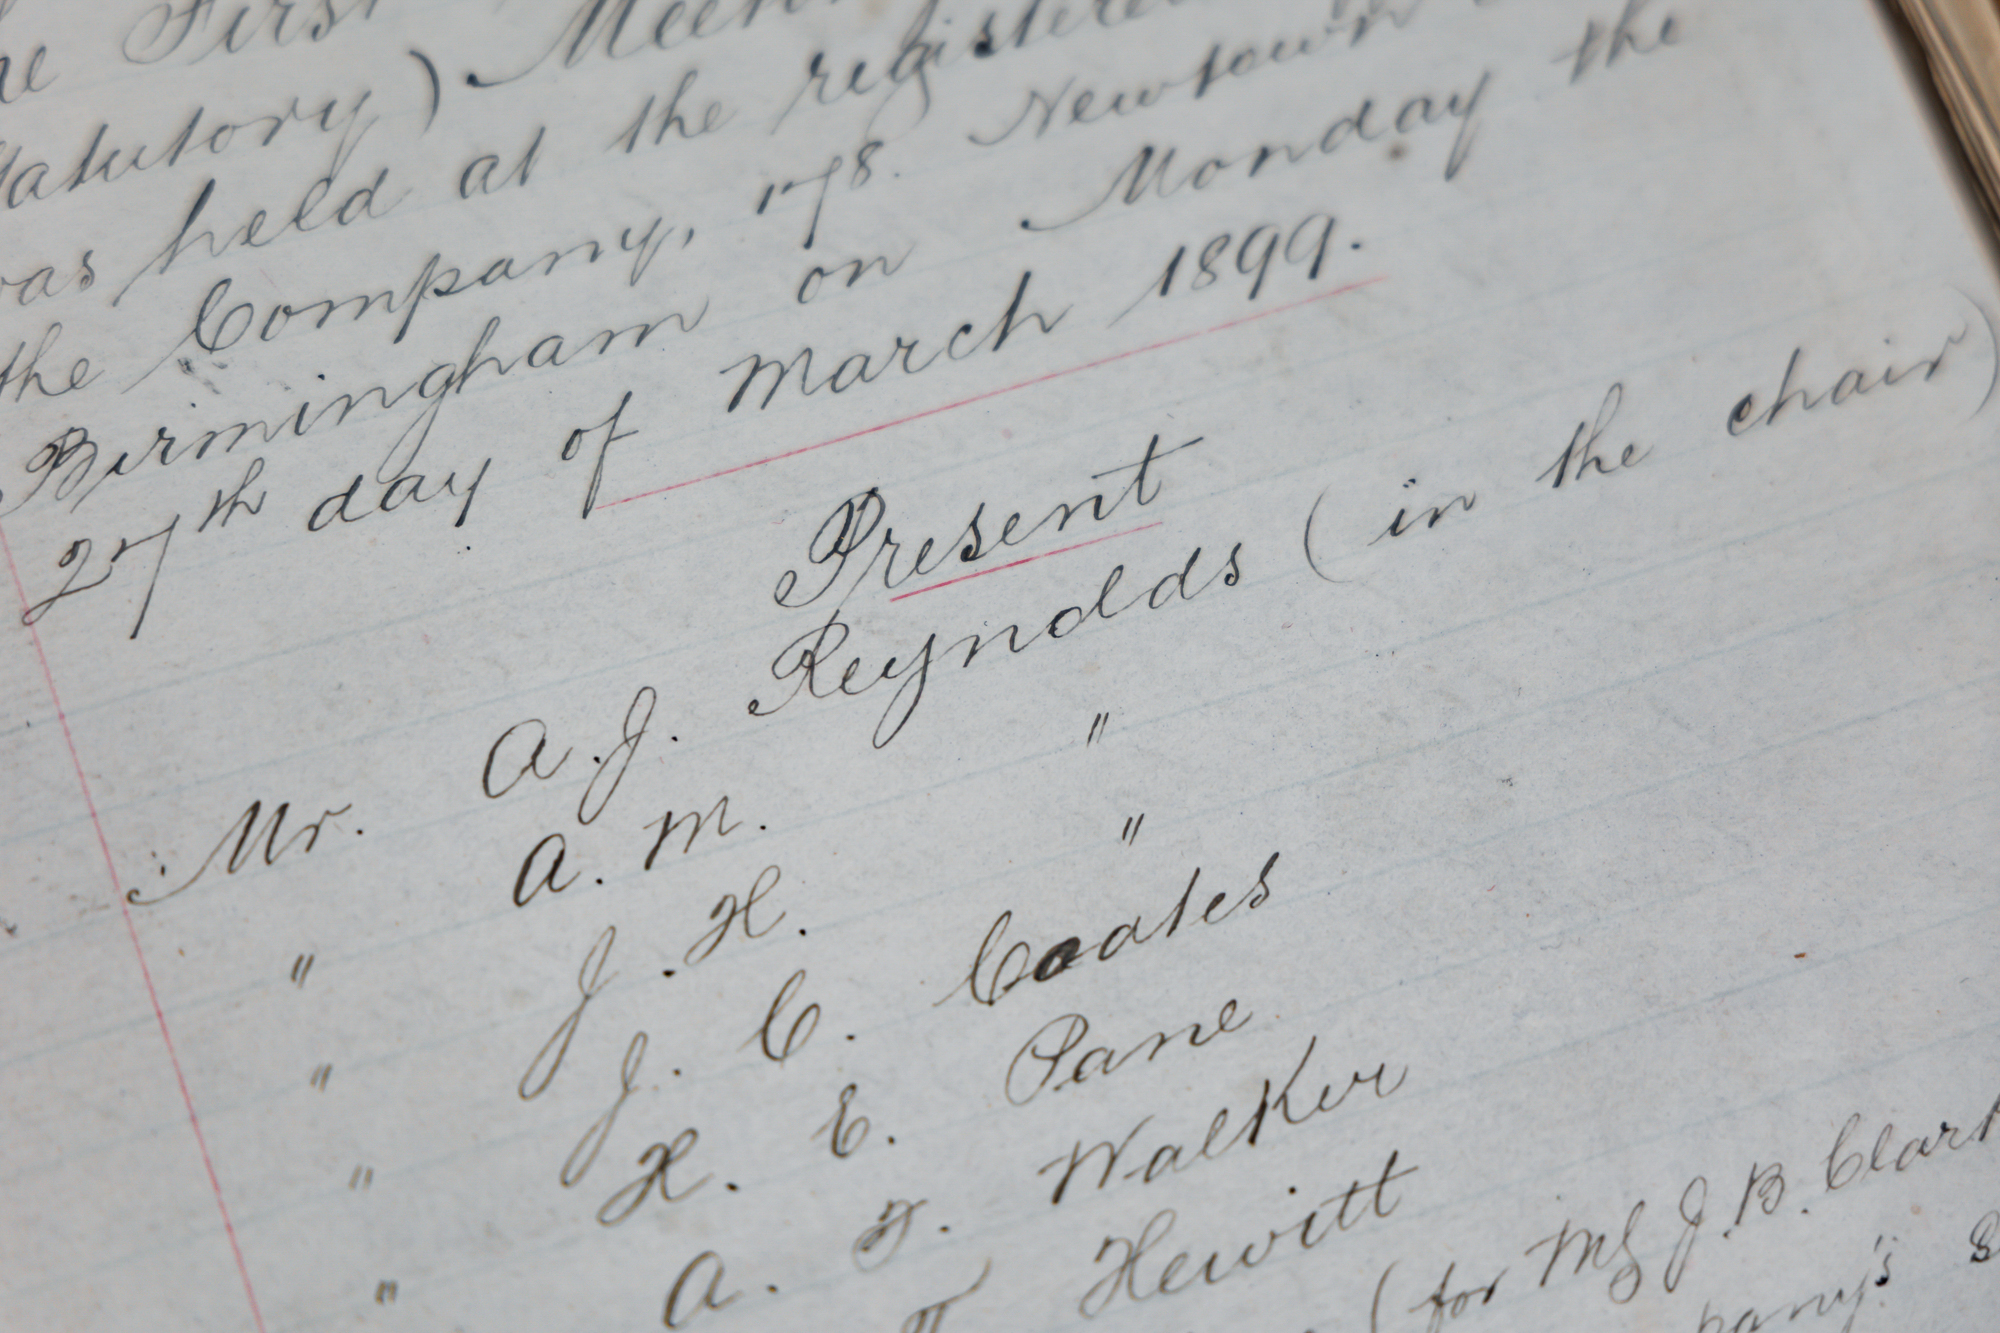 First
tatutory) Meetin
was held at the registered
the Company, 178. Newtown
Birmingham on Monday the
27th day of March 1899.
Present
Mr. A. J. Reynolds (in the chair)
" A. M. "
" J. H. "
" J. C. Coates
" H. E. Pane
A. F. Walker
Hewitt
(for Mrs J. B. Clark
pany's